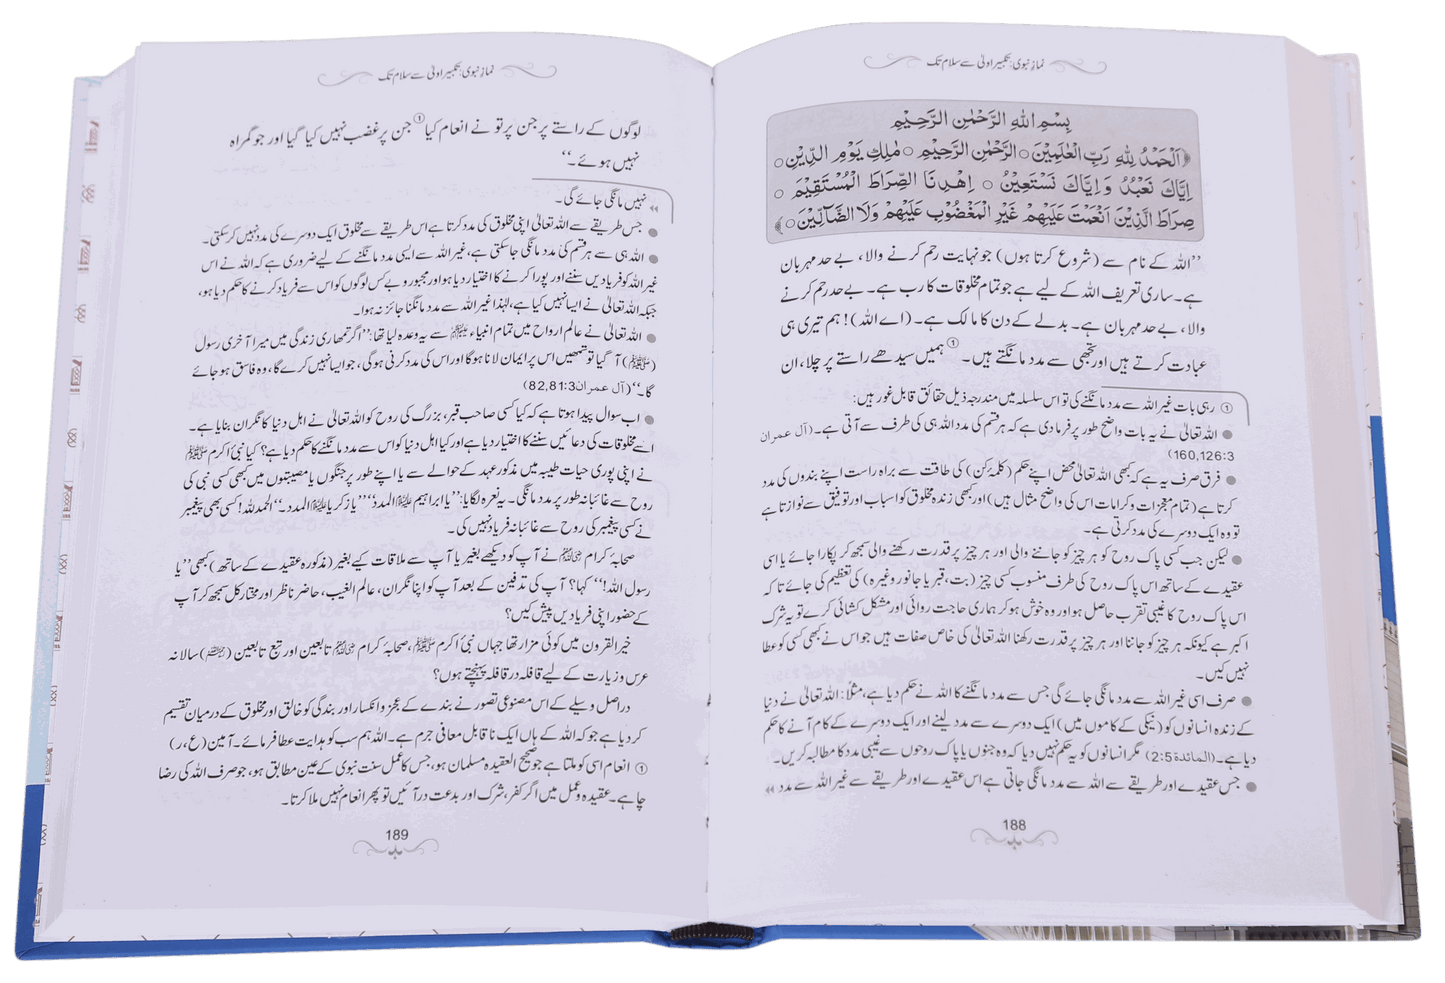 نمازِ نبوی: تکبیر اولیٰ سے سلام تک
بِسْمِ اللهِ الرَّحْمٰنِ الرَّحِيْمِ
﴿اَلْحَمْدُ لِلّٰهِ رَبِّ الْعٰلَمِيْنَ ○ الرَّحْمٰنِ الرَّحِيْمِ ○ مٰلِكِ يَوْمِ الدِّيْنِ ○
اِيَّاكَ نَعْبُدُ وَاِيَّاكَ نَسْتَعِيْنُ ○ اِهْدِنَا الصِّرَاطَ الْمُسْتَقِيْمَ ○
صِرَاطَ الَّذِيْنَ اَنْعَمْتَ عَلَيْهِمْ غَيْرِ الْمَغْضُوْبِ عَلَيْهِمْ وَلَا الضَّآلِّيْنَ ○﴾
”اللہ کے نام سے (شروع کرتا ہوں) جو نہایت رحم کرنے والا، بے حد مہربان
ہے۔ ساری تعریف اللہ کے لیے ہے جو تمام مخلوقات کا رب ہے۔ بے حد رحم کرنے
والا، بے حد مہربان ہے۔ بدلے کے دن کا مالک ہے۔ (اے اللہ)! ہم تیری ہی
عبادت کرتے ہیں اور تجھی سے مدد مانگتے ہیں۔① ہمیں سیدھے راستے پر چلا، ان
① رہی بات غیر اللہ سے مدد مانگنے کی تو اس سلسلہ میں مندرجہ ذیل حقائق قابل غور ہیں:
● اللہ تعالیٰ نے یہ بات واضح طور پر فرما دی ہے کہ ہر قسم کی مدد اللہ ہی کی طرف سے آتی ہے۔ (آل عمران
160,126:3)
● فرق صرف یہ ہے کہ کبھی اللہ تعالیٰ محض اپنے حکم (کلمۂ کن) کی طاقت سے براہ راست اپنے بندوں کی مدد
کرتا ہے (تمام معجزات و کرامات اس کی واضح مثال ہیں) اور کبھی زندہ مخلوق کو اسباب اور توفیق سے نوازتا ہے
تو وہ ایک دوسرے کی مدد کرتی ہے۔
● لیکن جب کسی پاک روح کو ہر چیز کو جاننے والی اور ہر چیز پر قدرت رکھنے والی سمجھ کر پکارا جائے یا اسی
عقیدے کے ساتھ اس پاک روح کی طرف منسوب کسی چیز (بت، قبر یا جانور وغیرہ) کی تعظیم کی جائے تاکہ
اس پاک روح کا غیبی تقرب حاصل ہو اور وہ خوش ہو کر ہماری حاجت روائی اور مشکل کشائی کرے تو یہ شرک
اکبر ہے کیونکہ ہر چیز کو جاننا اور ہر چیز پر قدرت رکھنا اللہ تعالیٰ کی خاص صفات ہیں جو اس نے کبھی کسی کو عطا
نہیں کیں۔
● صرف اسی غیر اللہ سے مدد مانگی جائے گی جس سے مدد مانگنے کا اللہ نے حکم دیا ہے، مثلاً: اللہ تعالیٰ نے دنیا
کے زندہ انسانوں کو (نیکی کے کاموں میں) ایک دوسرے سے مدد لینے اور ایک دوسرے کے کام آنے کا حکم
دیا ہے۔ (المائدۃ 2:5) مگر انسانوں کو یہ حکم نہیں دیا کہ وہ جنوں یا پاک روحوں سے غیبی مدد کا مطالبہ کریں۔
● جس عقیدے اور طریقے سے اللہ سے مدد مانگی جاتی ہے اس عقیدے اور طریقے سے غیر اللہ سے مدد »
188
نمازِ نبوی: تکبیر اولیٰ سے سلام تک
لوگوں کے راستے پر جن پر تو نے انعام کیا① جن پر غضب نہیں کیا گیا اور جو گمراہ
نہیں ہوئے۔“
» نہیں مانگی جائے گی۔
● جس طریقے سے اللہ تعالیٰ اپنی مخلوق کی مدد کرتا ہے اس طریقے سے مخلوق ایک دوسرے کی مدد نہیں کر سکتی۔
● اللہ ہی سے ہر قسم کی مدد مانگی جا سکتی ہے، غیر اللہ سے ایسی مدد مانگنے کے لیے ضروری ہے کہ اللہ نے اس
غیر اللہ کو فریادیں سننے اور پورا کرنے کا اختیار دیا ہو اور مجبور و بے کس لوگوں کو اس سے فریاد کرنے کا حکم دیا ہو،
جبکہ اللہ تعالیٰ نے ایسا نہیں کیا ہے، لہٰذا غیر اللہ سے مدد مانگنا جائز نہ ہوا۔
● اللہ تعالیٰ نے عالم ارواح میں تمام انبیاء ﷺ سے یہ وعدہ لیا تھا: ”اگر تمھاری زندگی میں میرا آخری رسول
(ﷺ) آ گیا تو تمھیں اس پر ایمان لانا ہوگا اور اس کی مدد کرنی ہوگی، جو ایسا نہیں کرے گا، وہ فاسق ہو جائے
گا۔“ (آل عمران 82,81:3)
● اب سوال پیدا ہوتا ہے کہ کیا کسی صاحب قبر، بزرگ کی روح کو اللہ تعالیٰ نے اہل دنیا کا نگران بنایا ہے۔
اسے مخلوقات کی دعائیں سننے کا اختیار دیا ہے اور کیا اہل دنیا کو اس سے مدد مانگنے کا حکم دیا ہے؟ کیا نبی اکرم ﷺ
نے اپنی پوری حیات طیبہ میں مذکور عہد کے حوالے سے یا اپنے طور پر جنگوں یا مصیبتوں میں کبھی کسی نبی کی
روح سے غائبانہ طور پر مدد مانگی۔ یہ نعرہ لگایا: ”یا ابراہیم ﷺ المدد“ ”یا زکریا ﷺ المدد۔“ الحمد للہ! کسی بھی پیغمبر
نے کسی پیغمبر کی روح سے غائبانہ فریاد نہیں کی۔
صحابۂ کرام ﷺ نے آپ کو دیکھے بغیر یا آپ سے ملاقات کیے بغیر (مذکورہ عقیدے کے ساتھ) کبھی ”یا
رسول اللہ!“ کہا؟ آپ کی تدفین کے بعد آپ کو اپنا نگران، عالم الغیب، حاضر ناظر اور مختار کل سمجھ کر آپ
کے حضور اپنی فریادیں پیش کیں؟
خیر القرون میں کوئی مزار تھا جہاں نبی اکرم ﷺ، صحابۂ کرام ﷺ تابعین اور تبع تابعین (ﷺ) سالانہ
عرس و زیارت کے لیے قافلہ در قافلہ پہنچتے ہوں؟
دراصل وسیلے کے اس مصنوعی تصور نے بندے کے عجز و انکسار اور بندگی کو خالق اور مخلوق کے درمیان تقسیم
کر دیا ہے جو کہ اللہ کے ہاں ایک ناقابل معافی جرم ہے۔ اللہ ہم سب کو ہدایت عطا فرمائے۔ آمین (ع، ر)
① انعام اسی کو ملتا ہے جو صحیح العقیدہ مسلمان ہو، جس کا عمل سنت نبوی کے عین مطابق ہو، جو صرف اللہ کی رضا
چاہے۔ عقیدہ و عمل میں اگر کفر، شرک اور بدعت در آئیں تو پھر انعام نہیں ملا کرتا۔
189